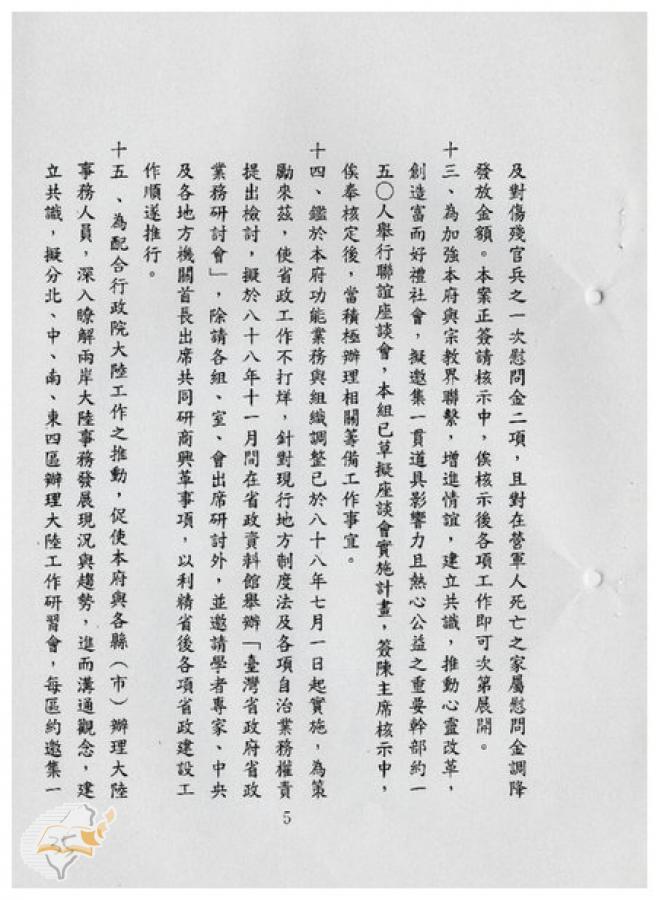 及對傷殘官兵之一次慰問金二項，且對在營軍人死亡之家屬慰問金調降
發放金額。本案正簽請核示中，俟核示後各項工作即可次第展開。
十三、為加強本府與宗教界聯繫，增進情誼，建立共識，推動心靈改革，
創造富而好禮社會，擬邀集一貫道具影響力且熱心公益之重要幹部約一
五〇人舉行聯誼座談會，本組已草擬座談會實施計畫，簽陳主席核示中，
俟奉核定後，當積極辦理相關籌備工作事宜。
十四、鑑於本府功能業務與組織調整已於八十八年七月一日起實施，為策
勵來茲，使省政工作不打烊，針對現行地方制度法及各項自治業務權責
提出檢討，擬於八十八年十一月間在省政資料館舉辦「臺灣省政府省政
業務研討會」，除請各組、室、會出席研討外，並邀請學者專家、中央
及各地方機關首長出席共同研商興革事項，以利精省後各項省政建設工
作順遂推行。
十五、為配合行政院大陸工作之推動，促使本府與各縣（市）辦理大陸
事務人員，深入瞭解兩岸大陸事務發展現況與趨勢，進而溝通觀念，建
立共識，擬分北、中、南、東四區辦理大陸工作研習會，每區約邀集一
5
25